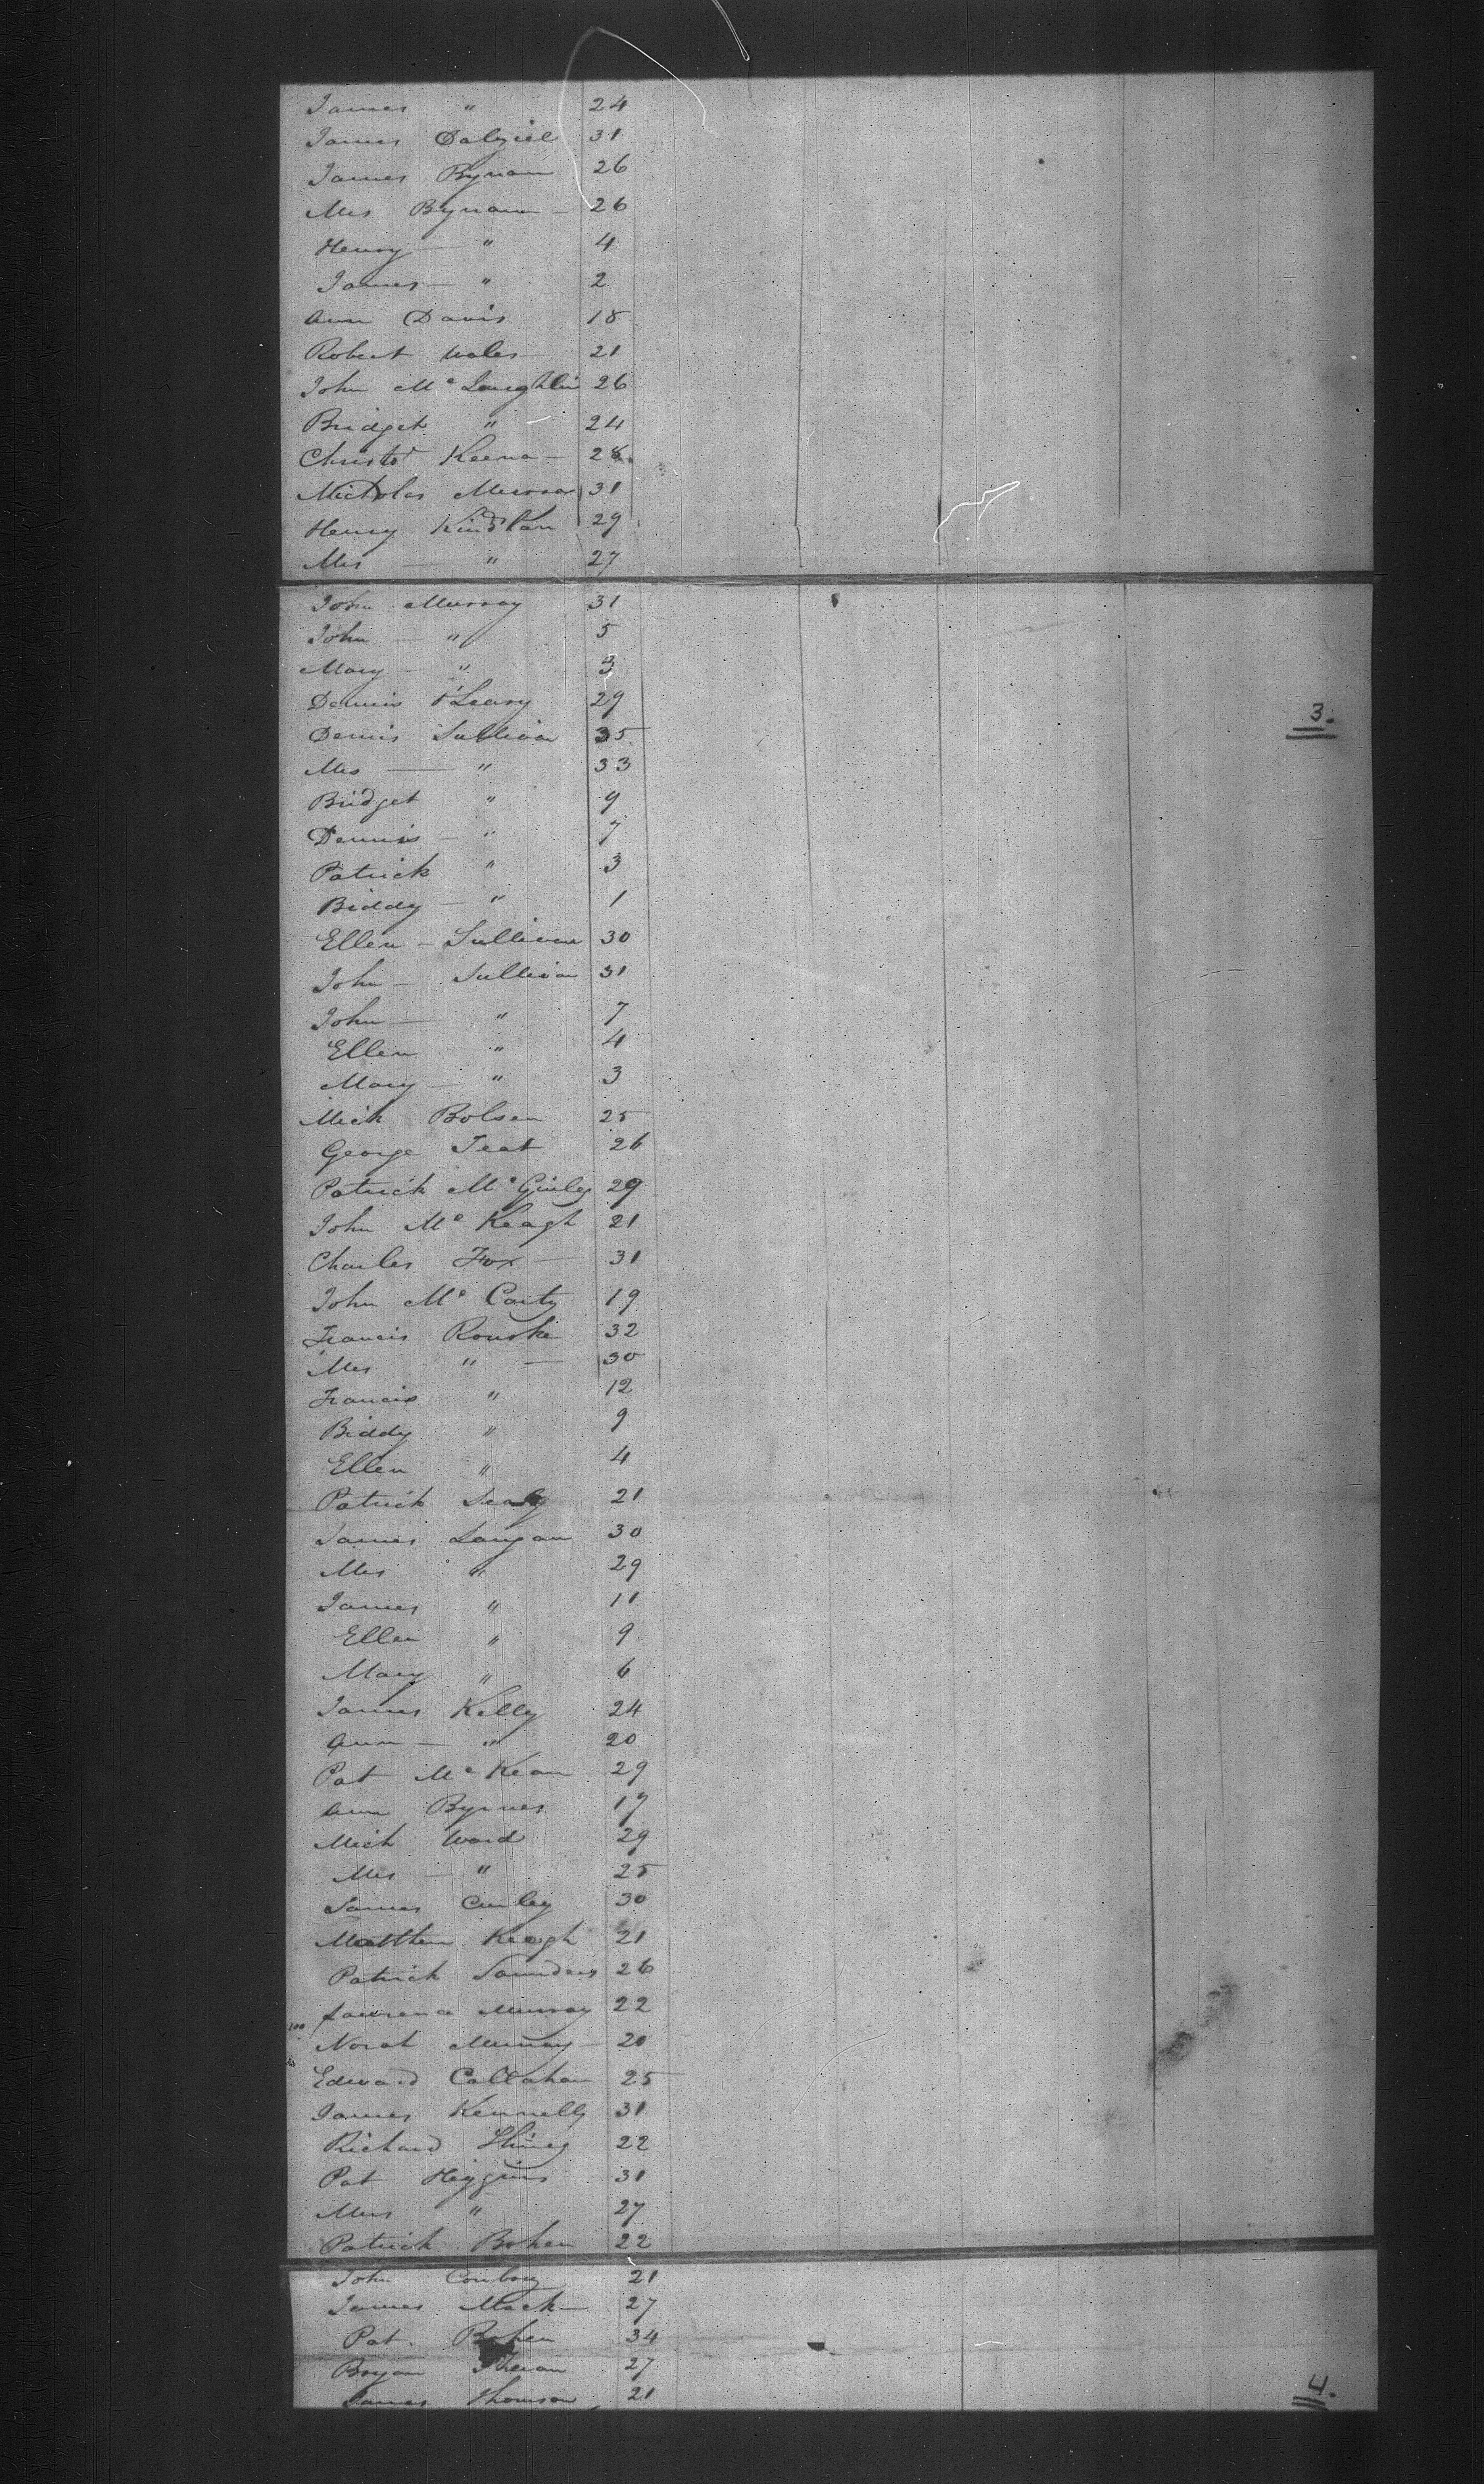 James " 24
James Dalziel 31
James Bynam 26
Mrs Bynam 26
Henry " 4
James " 2
Ann Davis 18
Robert Wales 21
John Mc Laughlin 26
Bridget " 24
Christr Keena 28
Nicholas 31
Henry Kindkan 29
Mrs " 27
John Murray 31
John " 5
Mary " 3
Dennis O'Leary 29
Dennis Sullivan 35
Mrs " 33
Bridget " 9
Dennis " 7
Patrick " 3
Biddy " 1
Ellen Sullivan 30
John Sullivan 31
John " 7
Ellen " 4
Mary " 3
Mick Bolsen 25
George Teat 26
Patrick Mc Ginley 29
John Mc Keagh 21
Charles Fox 31
John Mc Carty 19
Francis Rourke 32
Mrs " 30
Francis " 12
Biddy " 9
Ellen " 4
Patrick 21
James Langan 30
Mrs " 29
James " 11
Ellen " 9
Mary " 6
James Kelly 24
Ann " 20
Pat Mc Kean 29
Ann Byrnes 17
Mich Ward 29
Mrs " 25
James Curley 30
Matthew Keogh 21
Patrick Saunders 26
Lawrence Murray 22
100 Norah Murray 20
Edward Callahan 25
James Kennelly 31
Richard 22
Pat Higgins 31
Mrs " 27
Patrick Bohen 22
John Conboy 21
James Mack 27
Pat Bohen 34
Bryan 27
James Thomson 21
3.
4.